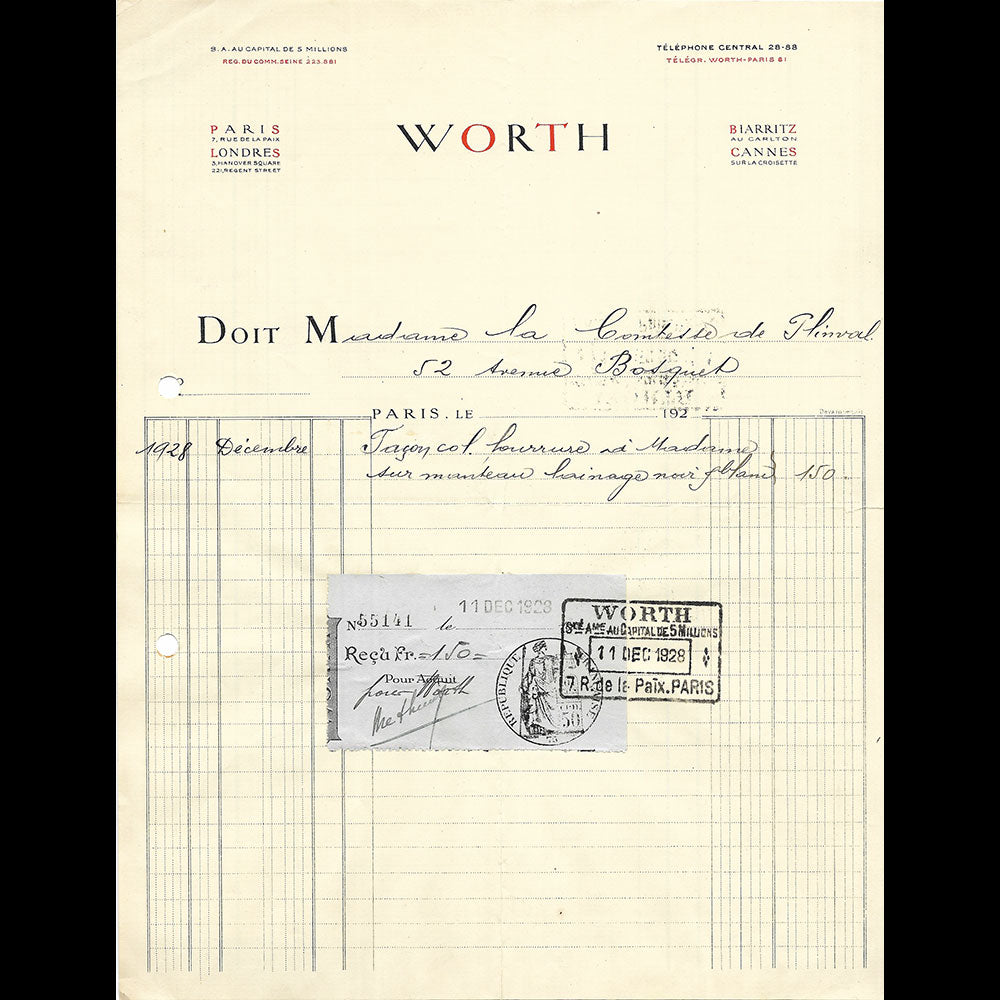 S. A. AU CAPITAL DE 5 MILLIONS
REG. DU COMM. SEINE 225.881
TÉLÉPHONE CENTRAL 28-88
TÉLÉGR. WORTH-PARIS 61
PARIS
7, RUE DE LA PAIX
LONDRES
3, HANOVER SQUARE
221, REGENT STREET
WORTH
BIARRITZ
AU CARLTON
CANNES
SUR LA CROISETTE
DOIT Madame la Comtesse de Plinval
52 Avenue Bosquet
PARIS, LE 192
1928 Décembre Façon col fourrure à Madame
sur manteau lainage noir & blanc 150
11 DEC 1928
No 55141 le
Reçu Fr. =150=
Pour Acquit
pour Worth
REPUBLIQUE FRANCAISE
50
WORTH
Sté Ame AU CAPITAL DE 5 MILLIONS
11 DEC 1928
7, R. de la Paix. PARIS